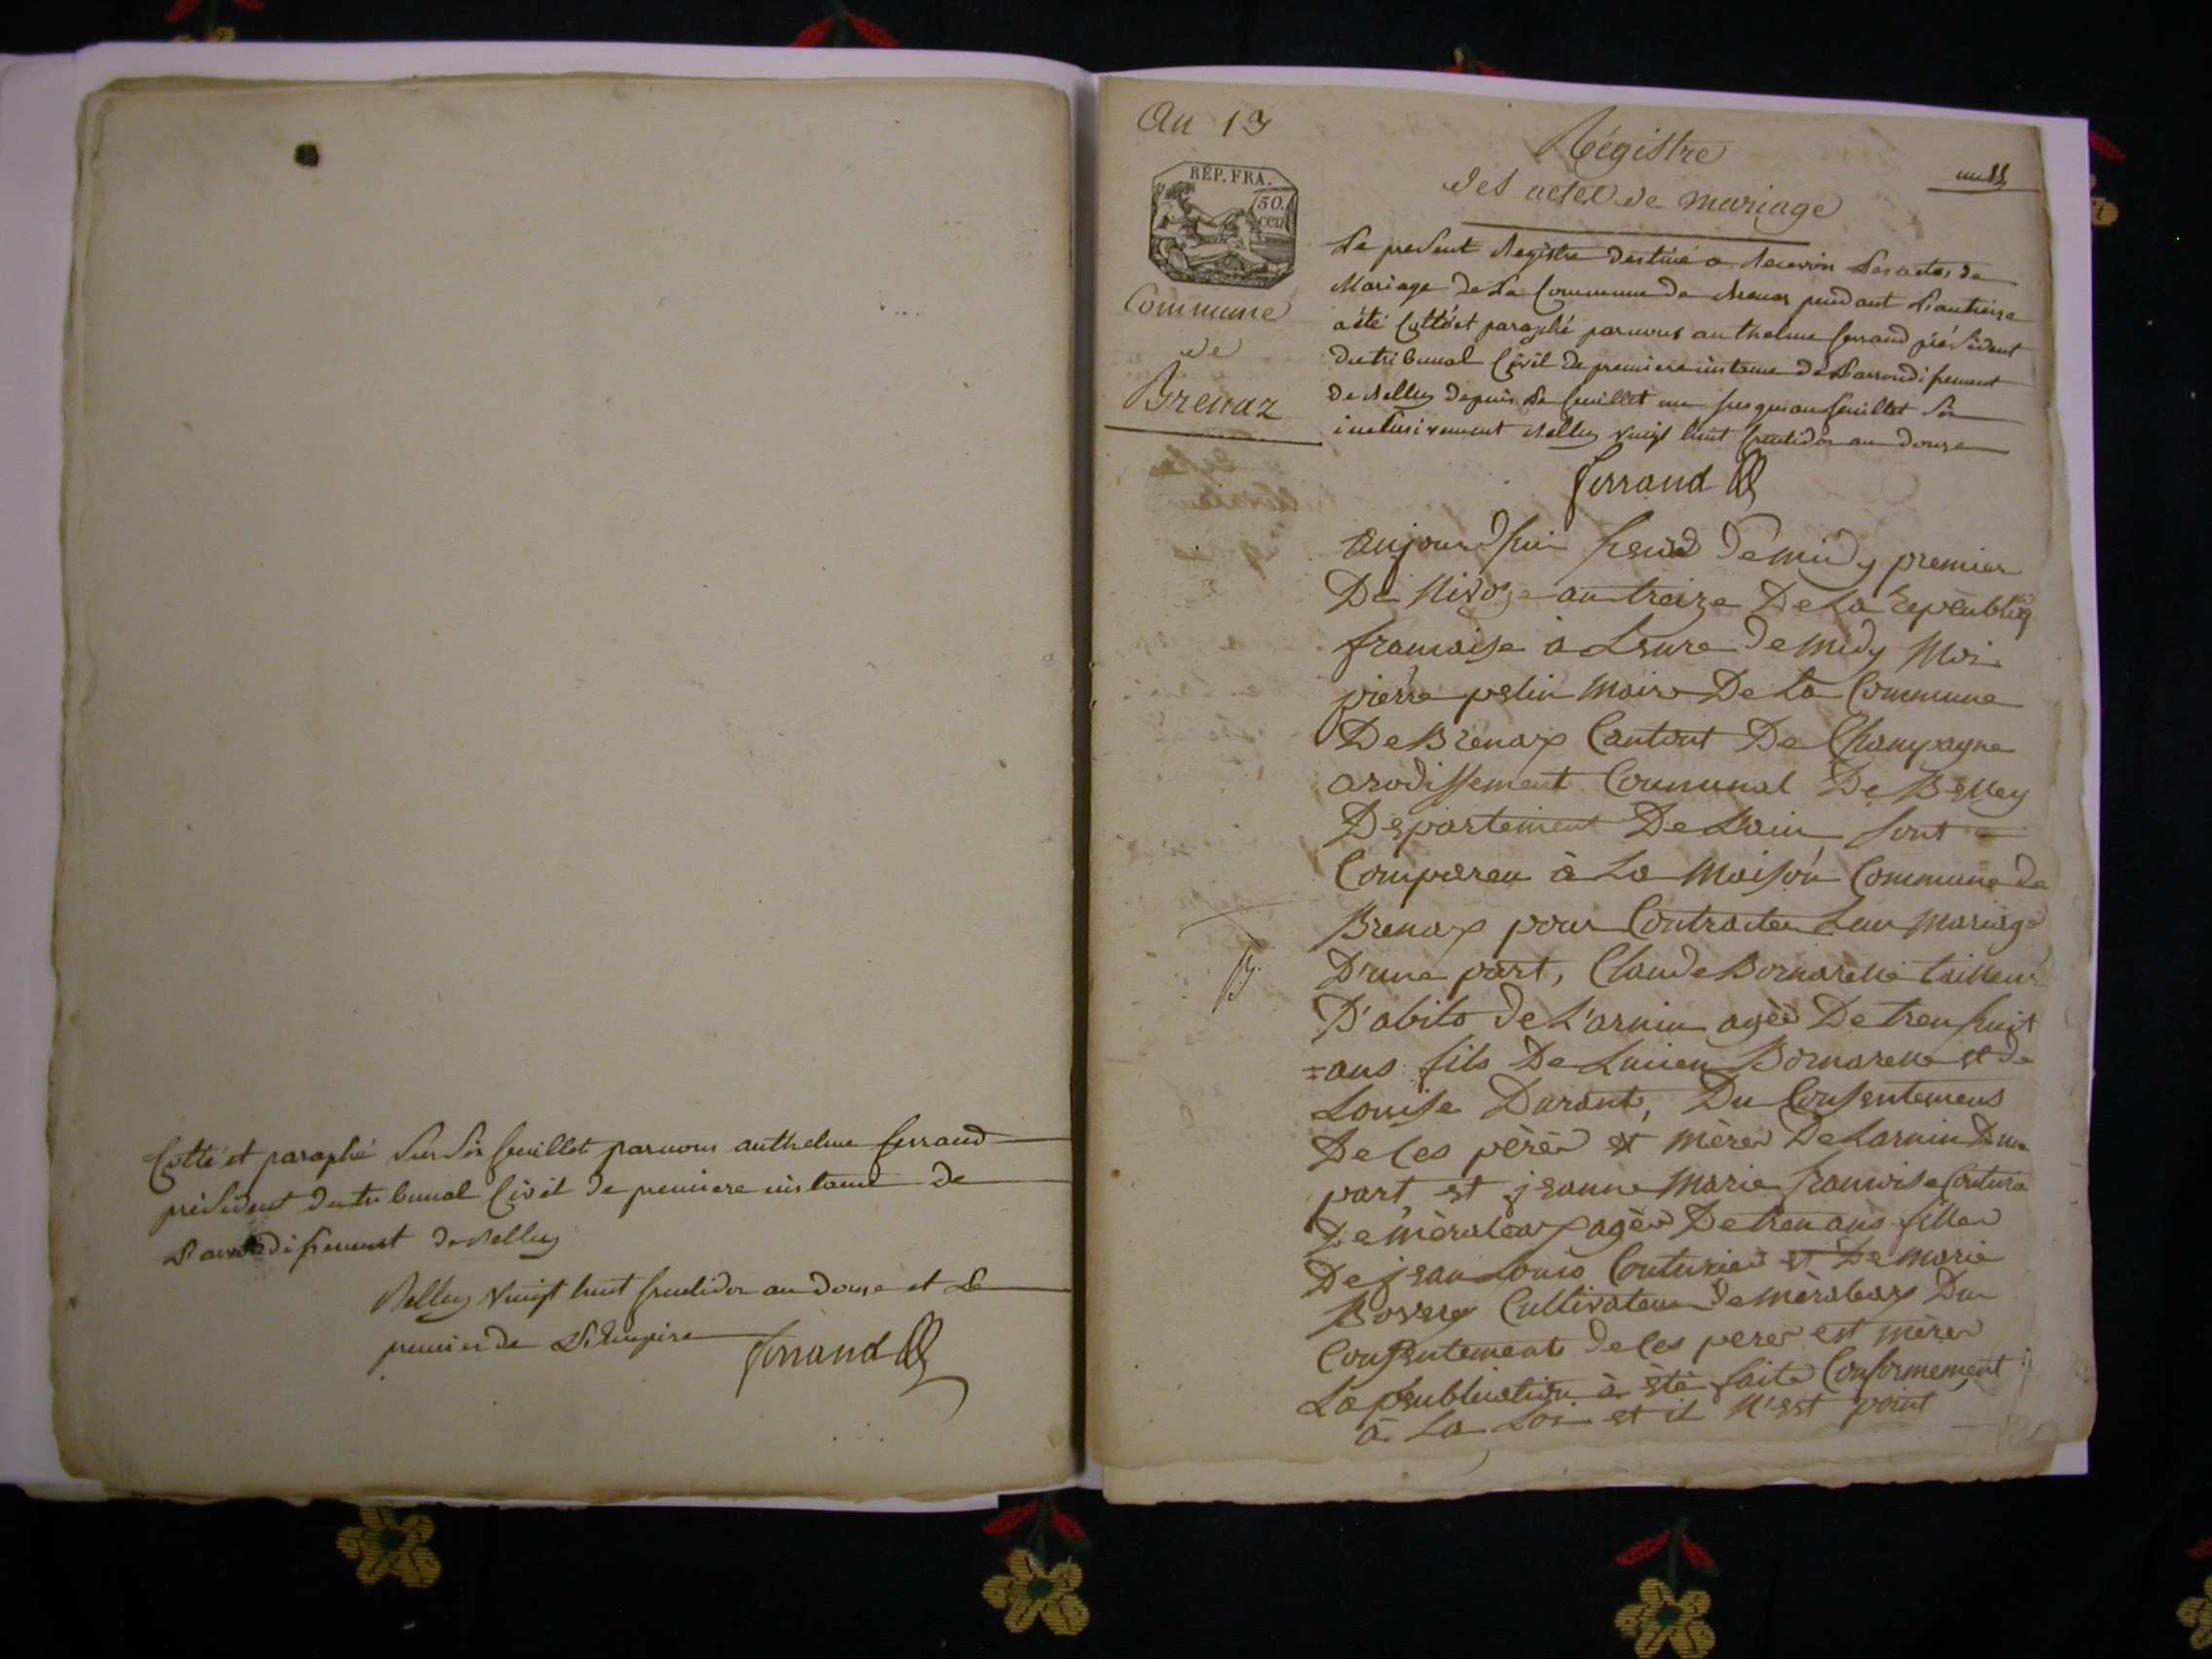 Cotté et paraphé sur six feuillets par nous anthelme ferrand
président du tribunal Civil de premiere instance de
L'arrondissement de Belley
Belley vingt huit fructidor an douze et Le
premier de L'Empire ferrand
An 13
RÉP. FRA.
50. cen
Commune
de
Brenaz
Régistre
des actes de mariage
Le present Registre destiné a Recevoir Les actes de
Mariage de La Commune de Brenaz pendant L'an treize
a été Cotté et paraphé par nous anthelme ferrand président
du tribunal Civil de premiere instance de L'arrondissement
de Belley depuis Le feuillet un jusqu'au feuillet six
inclusivement Belley vingt huit fructidor an douze
ferrand
aujourdhui de midy premier
De Nivoze an treize De La Republiq
francaise à Leure de midy Moi
pierre pelin Maire De La Commune
De Brenax Cantont De Champagne
arodissement Communal De Belley
Departement De Lain sont
Compareu à La Maison Commune de
Brenax pour Contracter Leur mariage
D'une part, Claude Bornarelle tailleur
D'abits de L'arnin agée De tren huit
ans fils De Lucien Bornarelle et de
Louise Durant, Du Consentemens
De ces pèrer et mèrer De Larnin D'une
part et jeanne Marie francoise Couturie
De mèraleax agée De tren ans filler
De jean Louis Couturier et De Marie
Cultivateur De mèraleax Du
Consentement de ces perer est mèrer
La peublication à été faite Conformement
à La Loi et il N'est point